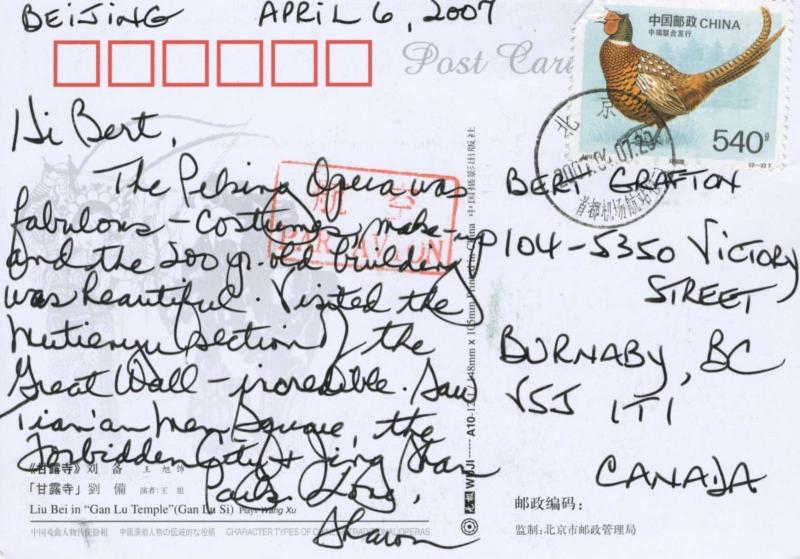 BEIJING APRIL 6, 2007
Post Card
中国邮政 CHINA
中瑞联合发行
540分
北京
2007.04.07.20
首都机场航站
Hi Bert,
The Peking Opera was
fabulous - costumes, make-up
and the 200 yr. old building
was beautiful. Visited the
Mutienyu section of the
Great Wall - incredible. Saw
Tian'anmen Square, the
Forbidden City & Jing Shan
Park. Love,
Sharon
航空
PAR AVION
BERT GRAFTON
104-5350 VICTORY
STREET
BURNABY, BC
V5J 1T1
CANADA
《甘露寺》刘备 王旭饰
「甘露寺」劉備 演者:王旭
Liu Bei in "Gan Lu Temple"(Gan Lu Si) Plays Wang Xu
CHARACTER TYPES OF CHINESE TRADITIONAL OPERAS
邮政编码:
监制:北京市邮政管理局
148mm x 105mm Printed in China 中国摄影出版社